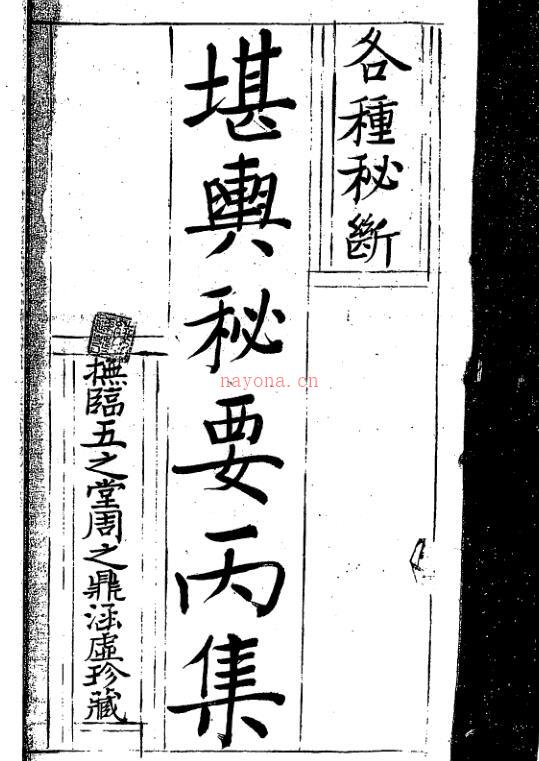 各種秘斷
堪輿秘要丙集
撫臨五之堂周之鼎涵虛珍藏
nayona.cn